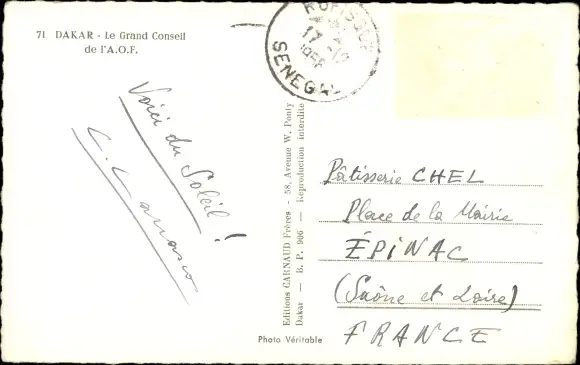 71 DAKAR - Le Grand Conseil
de l'A.O.F.
Voici du Soleil !
RUFISQUE
17-12
SENEGAL
Editions CARNAUD Frères - 58, Avenue W. Ponty
Dakar — B. P. 906 — Reproduction interdite
Pâtisserie CHEL
Place de la Mairie
ÉPINAC
(Saône et Loire)
FRANCE
Photo Véritable